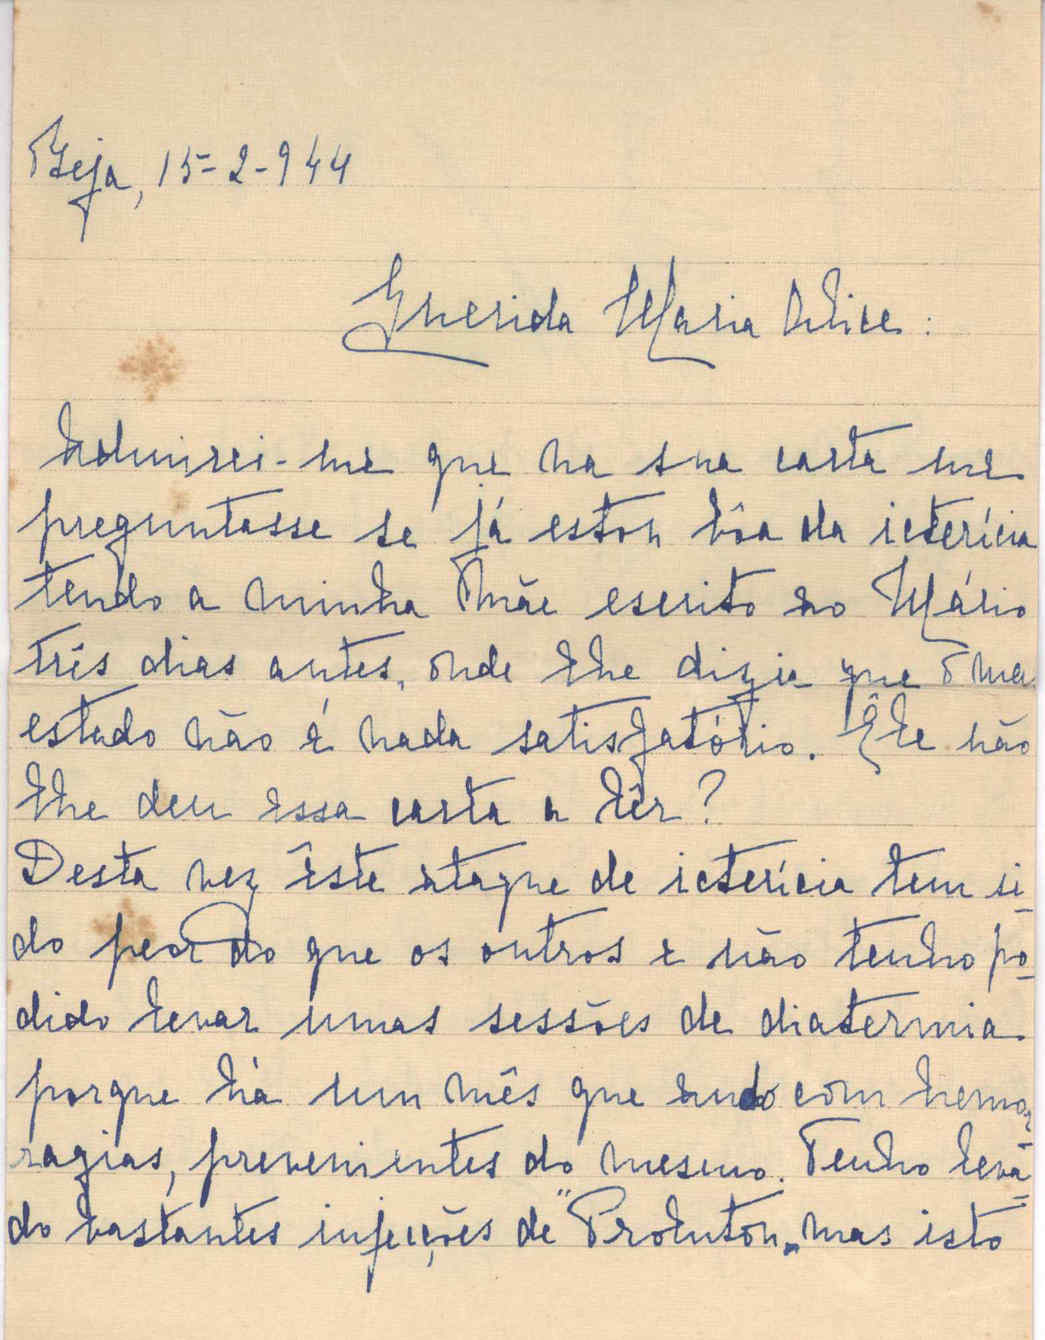 Beja, 15-2-944
Querida Maria Alice:
Admirei-me que na sua carta me
preguntasse se já estou bôa da icterícia
tendo a minha Mãe escrito ao Mário
três dias antes, onde lhe dizia que o meu
estado não é nada satisfatório. Êle não
lhe deu essa carta a lêr?
Desta vez êste ataque de icterícia tem si-
do peor do que os outros e não tenho po-
dido levar umas sessões de diatermia
porque há um mês que ando com hemor-
ragias, prevenientes do mesmo. Tenho leva-
do bastantes injecções de "Proluton" mas isto